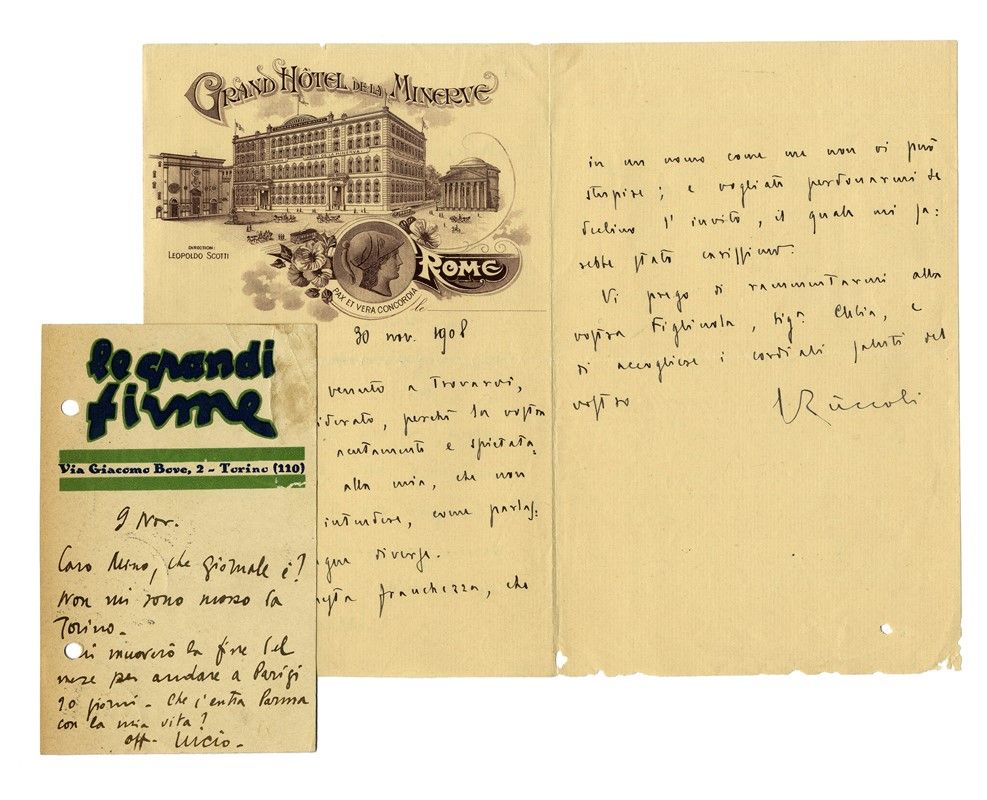 GRAND HÔTEL DE LA MINERVE
DIRECTION:
LEOPOLDO SCOTTI
ROME
PAX ET VERA CONCORDIA
le
30 nov. 1908
venuto a trovarvi,
perchè la vostra
acutamente e spietata
alla mia, che non
intendere, come parlas:
diverse.
franchezza, che
in un uomo come me non vi può
stupire; e vogliate perdonarmi se
declino l'invito, il quale mi sa:
rebbe stato carissimo.
Vi prego di rammentarmi alla
vostra Figliuola, sigª Clelia, e
di accogliere i cordiali saluti del
vostro
le grandi
firme
Via Giacomo Bove, 2 - Torino (110)
9 Nov.
Caro Mino, che giornale è?
Non mi sono mosso da
Torino.
muoverò la fine del
mese per andare a Parigi
20 giorni - Che c'entra Parma
con la mia vita?
aff. Lucio.